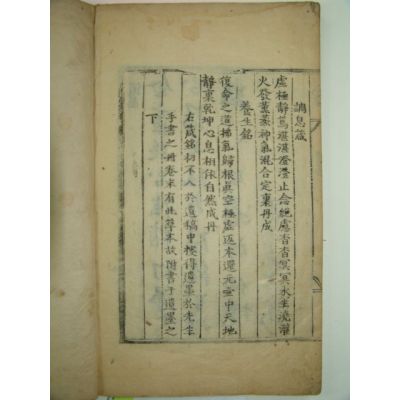 調息箴
虛極靜篤湛湛澄澄止念絕慮杳杳冥冥水生澆灌
火發薰蒸神氣混合定裏丹成
養生銘
復命之道機氣歸根眞空極虛返本還元空中天地
靜裏乾坤心息相依自然成丹
右箴銘初不入於遺稿中橫得遺墨於先生
手書之丹卷末有此草本故附書于遺墨之
下